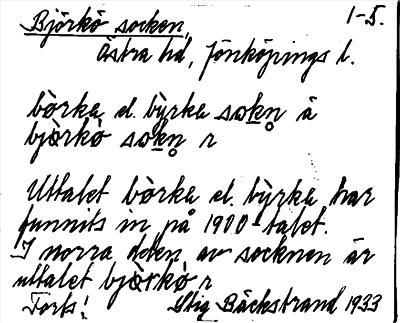 Björkö socken, 1-5.
Östra hd, Jönköpings l.
bò̀rka el. bỳrka sokn å
bjòrkò sokn r
Uttalet bòrka el. bỳrka har
funnits in på 1900-talet.
I norra delen av socknen är
uttalet bjòrkò r
Forts! Stig Bäckstrand 1933